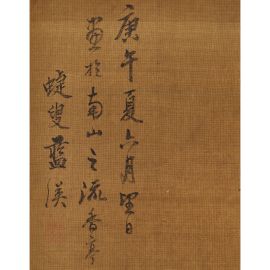 庚午夏六月望日
畫於南山之流香亭
蜨叟藍漢